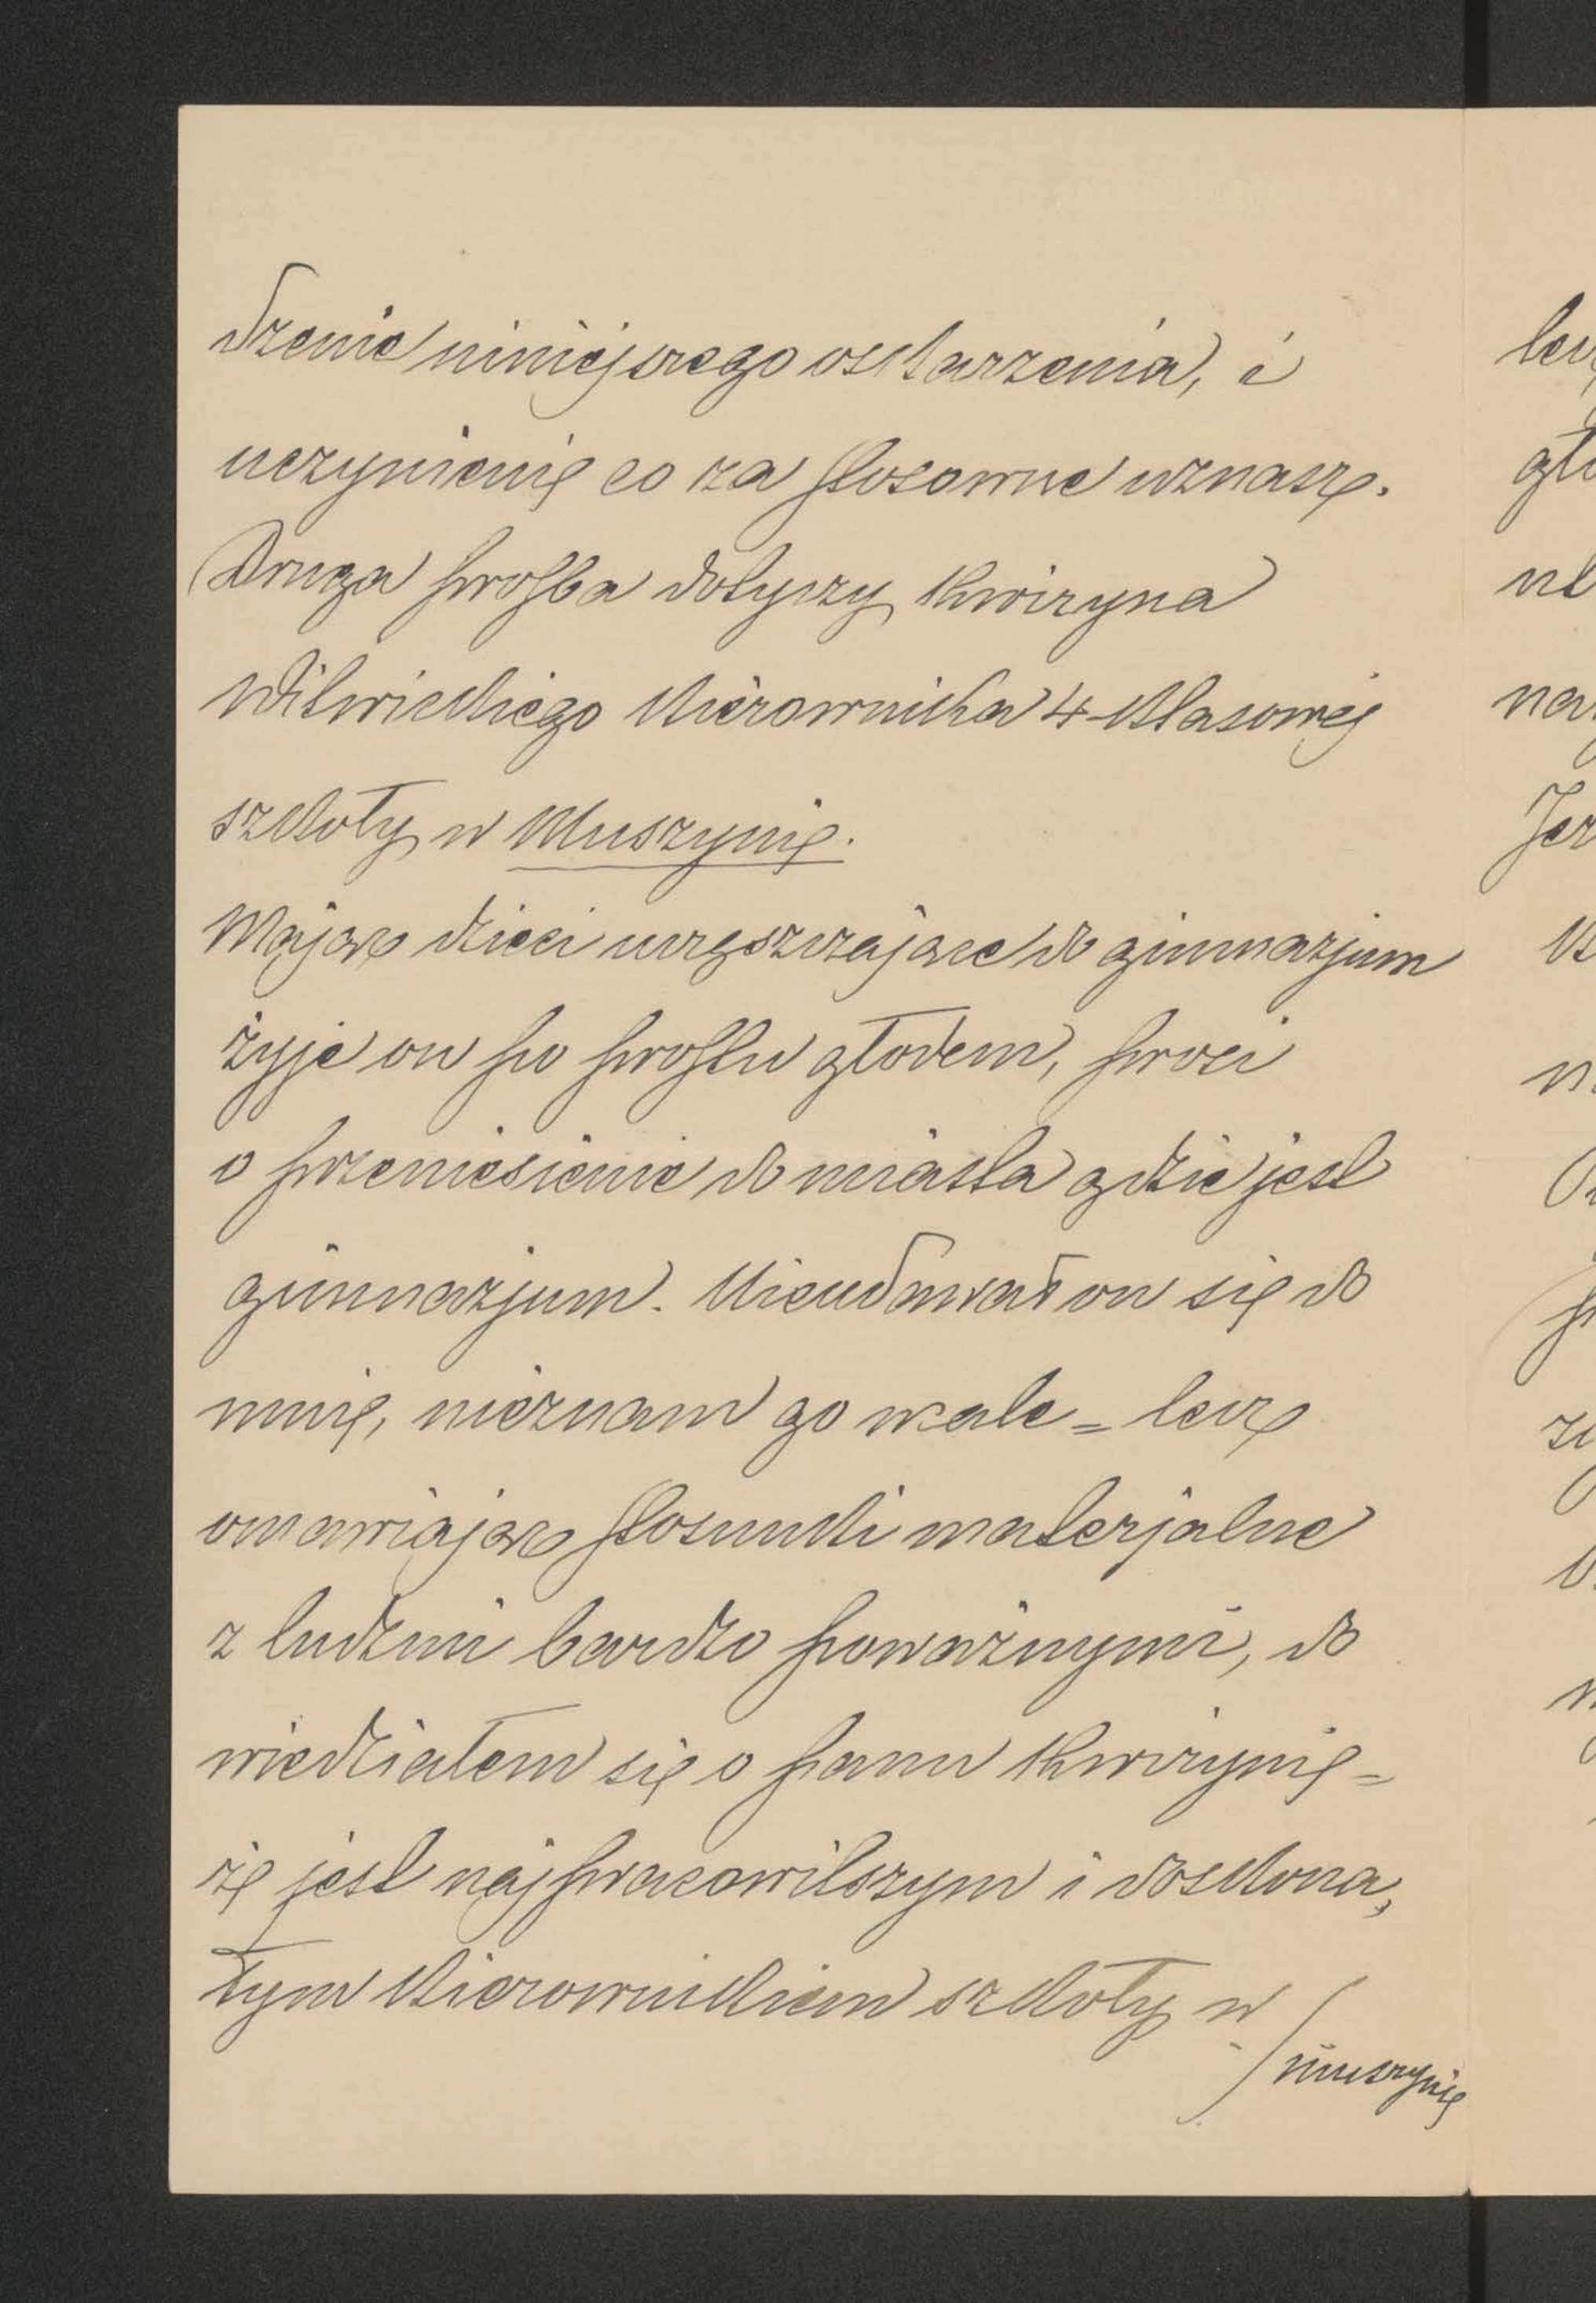 dzenie niniejszego oskarzenia, i
uczynienię co za stosowne uznasz.
Druga prośba dotyczy Kwiryna
Witwickiego kierownika 4-klasowej
szkoły w Muszynię.
Mając dzieci uczęszczające do gimnazjum
żyje on po prostu głodem, prosi
o przeniesienie do miasta gdzie jest
gimnazjum. Nieudawał on się do
mnię, nieznam go wcale = lecz
omawiając stosunki materjalne
z ludzmi bardzo poważnymi, do
wiedziałem się o panu Kwirynię =
żę jest najpracowitszym i doskona,
łym kierownikiem szkoły w
/ muszynię